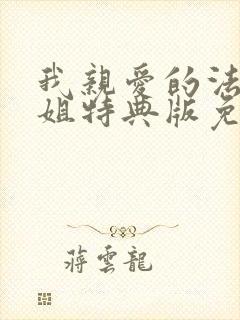 我親愛的法
姐特典版免
蔣雲龍